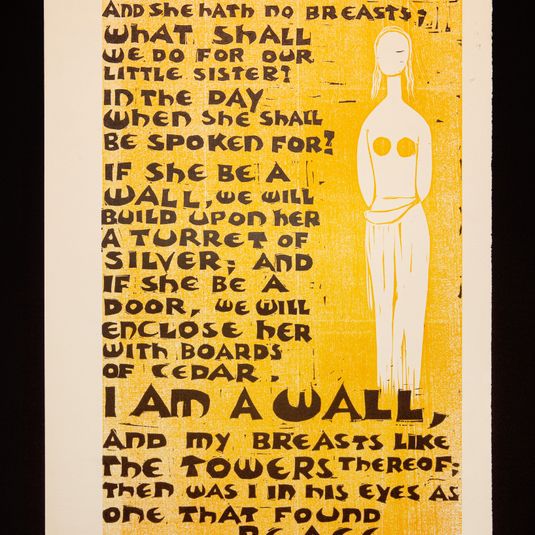 AND SHE HATH NO BREASTS;
WHAT SHALL
WE DO FOR OUR
LITTLE SISTER?
IN THE DAY
WHEN SHE SHALL
BE SPOKEN FOR?
IF SHE BE A
WALL, WE WILL
BUILD UPON HER
A TURRET OF
SILVER; AND
IF SHE BE A
DOOR, WE WILL
ENCLOSE HER
WITH BOARDS
OF CEDAR.
I AM A WALL,
AND MY BREASTS LIKE
THE TOWERS THEREOF;
THEN WAS I IN HIS EYES AS
ONE THAT FOUND